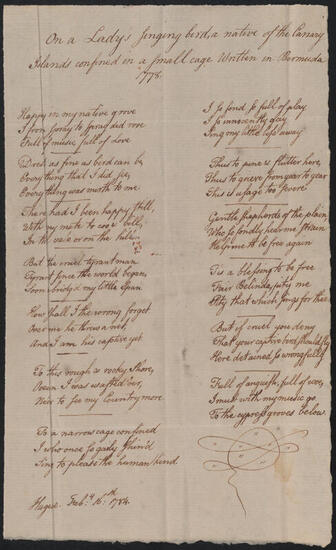 On a Ladys singing bird, a native of the Canary
Islands confined in a small cage Written in Bermuda
1778.
Happy in my native grove
I from spray to spray did rove
Full of music full of love
Drest as fine as bird can be,
Every thing that I did see,
Every thing was mirth to me
There had I been happy still,
With my mate to coo & bill,
In the vale or on the hill
But the cruel tyrant man
Tyrant since the world began,
Soon abridg'd my little span
How shall I the wrong forget
Over me he threw a net,
And I am his captive yet
To this rough & rocky shore,
Ocean I was wafted o'er,
Ne'er to see my Country more
To a narrow cage confined
I who once so gayly shin'd
Sing to please the human kind
Hague. Feby. 16th. 1784.
I so fond, so full of play
I so innocently gay
Sing my little life away
Thus to pine & flutter here,
Thus to grieve from year to year
This is usage too severe
Gentle shepherds of the plain,
Who so fondly hear my strain
Help me to be free again
Tis a blessing to be free
Fair Belinda pity me
Pity that which sings for thee
But if cruel you deny
That your captive should fly
Here detained so wrongfully
Full of anguish, full of woe,
I must with my music go
To the cypress groves below.